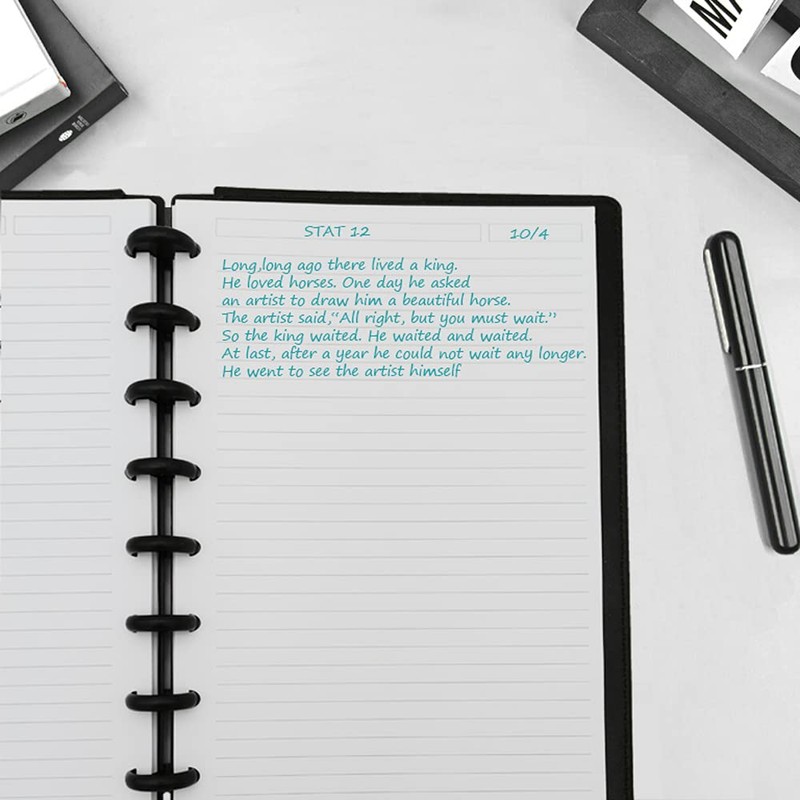 STAT 12
10/4
Long,long ago there lived a king.
He loved horses. One day he asked
an artist to draw him a beautiful horse.
The artist said,“All right, but you must wait.”
So the king waited. He waited and waited.
At last, after a year he could not wait any longer.
He went to see the artist himself